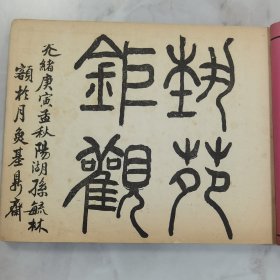 埶苑
鉅觀
光緒庚寅孟秋陽湖孫毓林
額於月奐基鼎齋